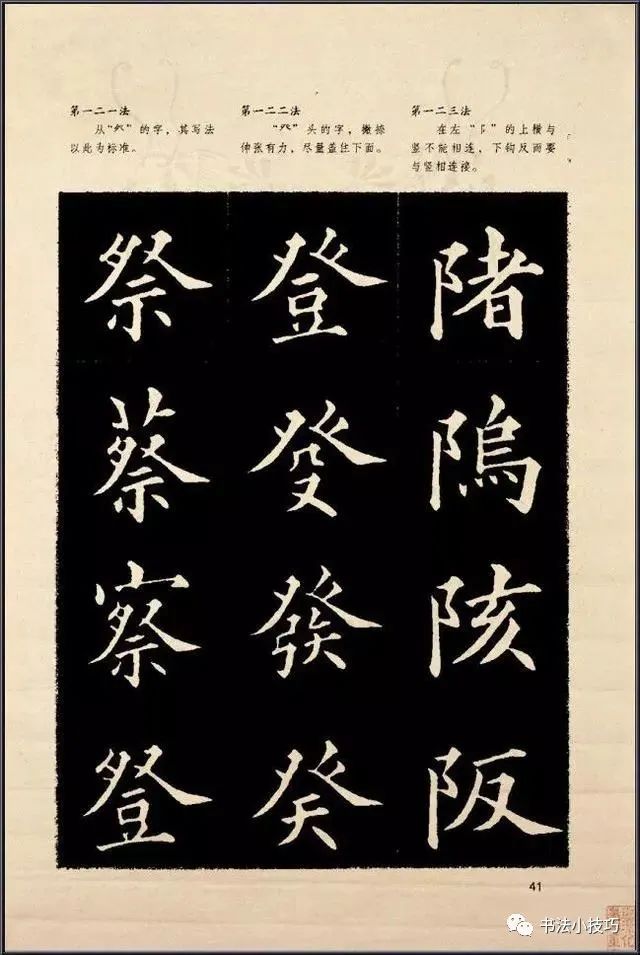 第一二一法
从“癶”的字，其写法
以此为标准。
第一二二法
“癶”头的字，撇捺
伸张有力，尽量盖住下面。
第一二三法
在左“阝”的上横与
竖不能相连，下钩反而要
与竖相连接。
祭蔡察豋
登癹發癸
陼隖陔阪
41
书法小技巧